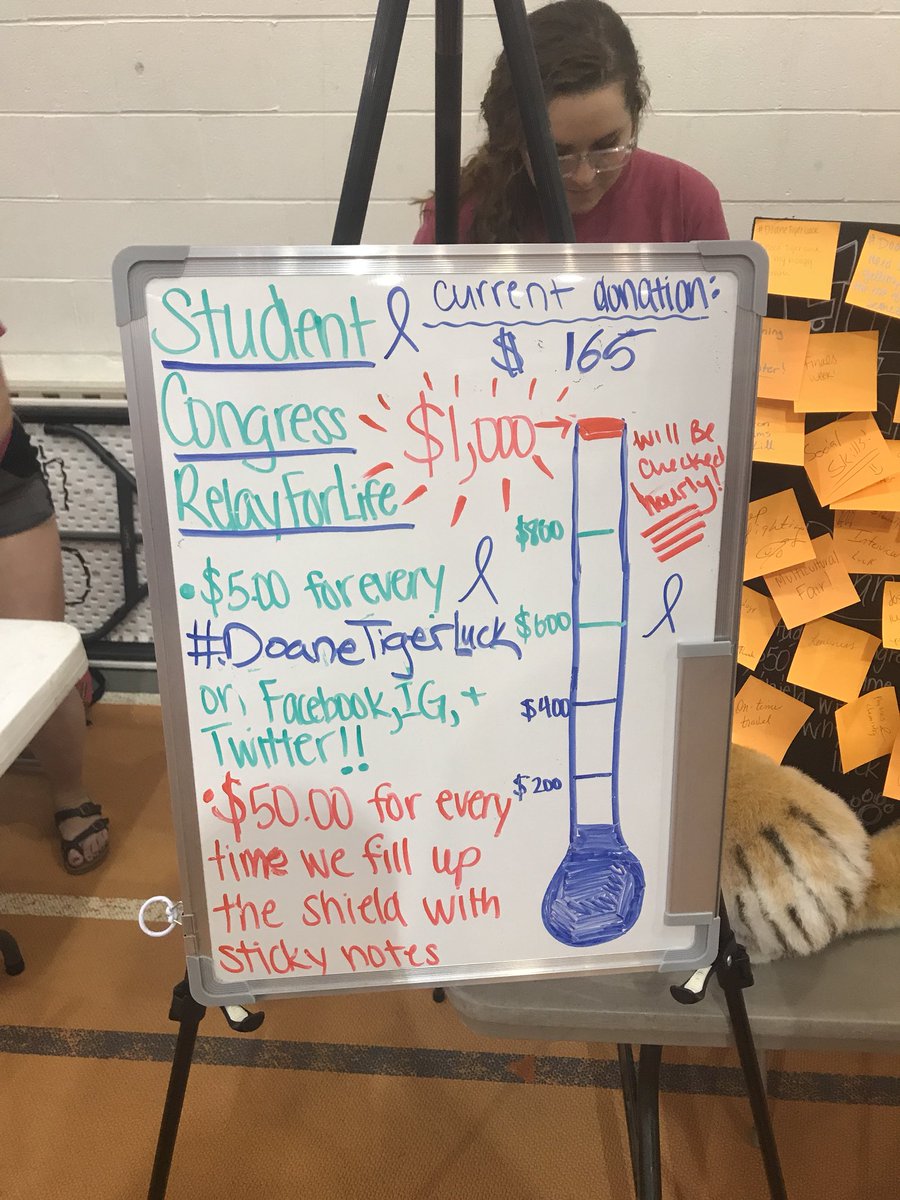 Student
current donation:
$ 165
Congress
$1,000
Relay For Life
will Be
checked
hourly!
$800
$600
$400
$200
• $5.00 for every
#DoaneTigerLuck
on, Facebook, IG, +
Twitter!!
• $50.00 for every
time we fill up
the shield with
sticky notes
#DoaneTigerLuck
need
Finals
week!
Social
Skills!
Interview
Multicultural
Fair
On-time
travel